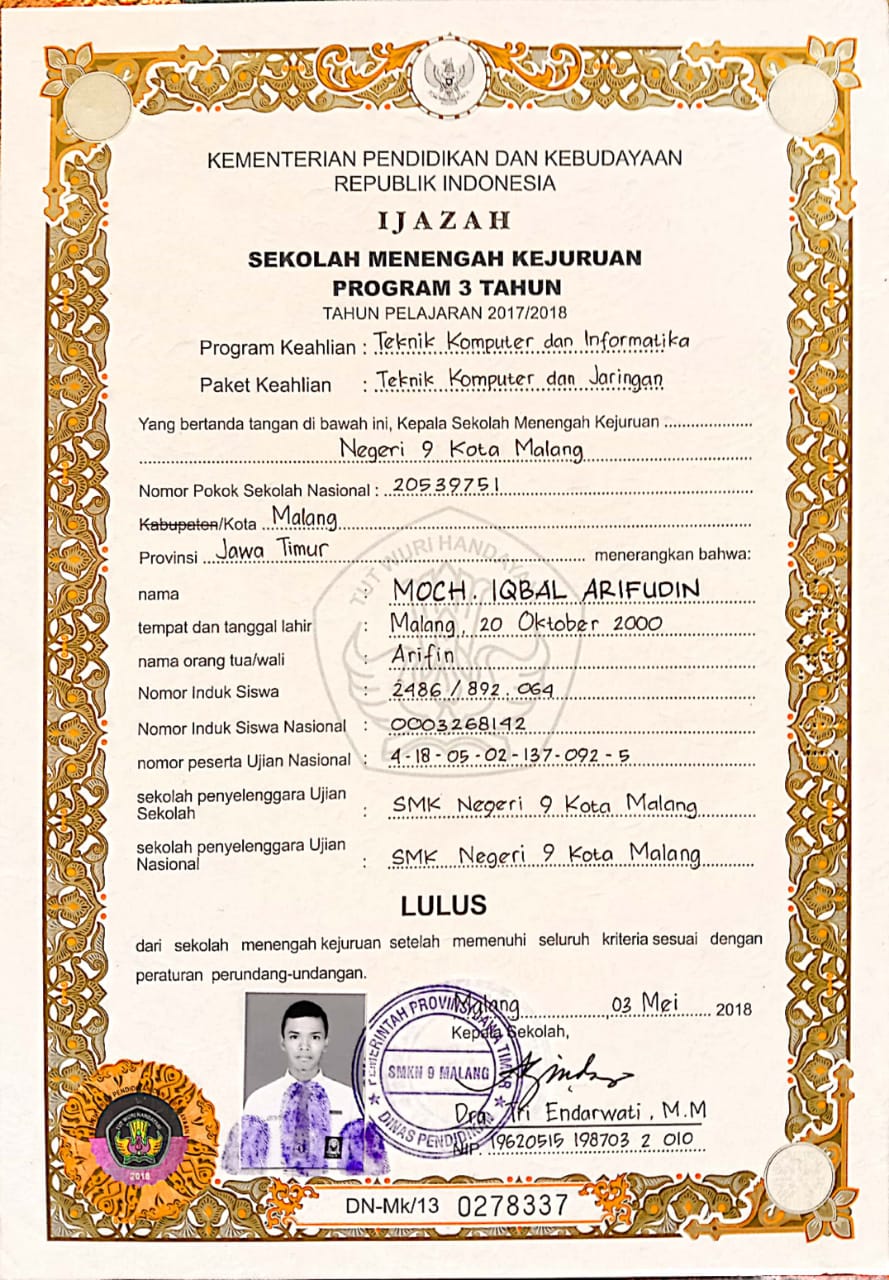 KEMENTERIAN PENDIDIKAN DAN KEBUDAYAAN
REPUBLIK INDONESIA
IJAZAH
SEKOLAH MENENGAH KEJURUAN
PROGRAM 3 TAHUN
TAHUN PELAJARAN 2017/2018
Program Keahlian : Teknik Komputer dan Informatika
Paket Keahlian : Teknik Komputer dan Jaringan
Yang bertanda tangan di bawah ini, Kepala Sekolah Menengah Kejuruan
Negeri 9 Kota Malang
Nomor Pokok Sekolah Nasional : 20539751
Kabupaten/Kota Malang
Provinsi Jawa Timur menerangkan bahwa:
TUT WURI HANDAYANI
nama : MOCH. IQBAL ARIFUDIN
tempat dan tanggal lahir : Malang, 20 Oktober 2000
nama orang tua/wali : Arifin
Nomor Induk Siswa : 2486 / 892.064
Nomor Induk Siswa Nasional : 0003268142
nomor peserta Ujian Nasional : 4-18-05-02-137-092-5
sekolah penyelenggara Ujian
Sekolah : SMK Negeri 9 Kota Malang
sekolah penyelenggara Ujian
Nasional : SMK Negeri 9 Kota Malang
LULUS
dari sekolah menengah kejuruan setelah memenuhi seluruh kriteria sesuai dengan
peraturan perundang-undangan.
Malang, 03 Mei 2018
Kepala Sekolah,
PEMERINTAH PROVINSI JAWA TIMUR
SMKN 9 MALANG
DINAS PENDIDIKAN
Dra. Tri Endarwati, M.M
NIP. 19620515 198703 2 010
TUT WURI HANDAYANI
2018
DN-Mk/13 0278337